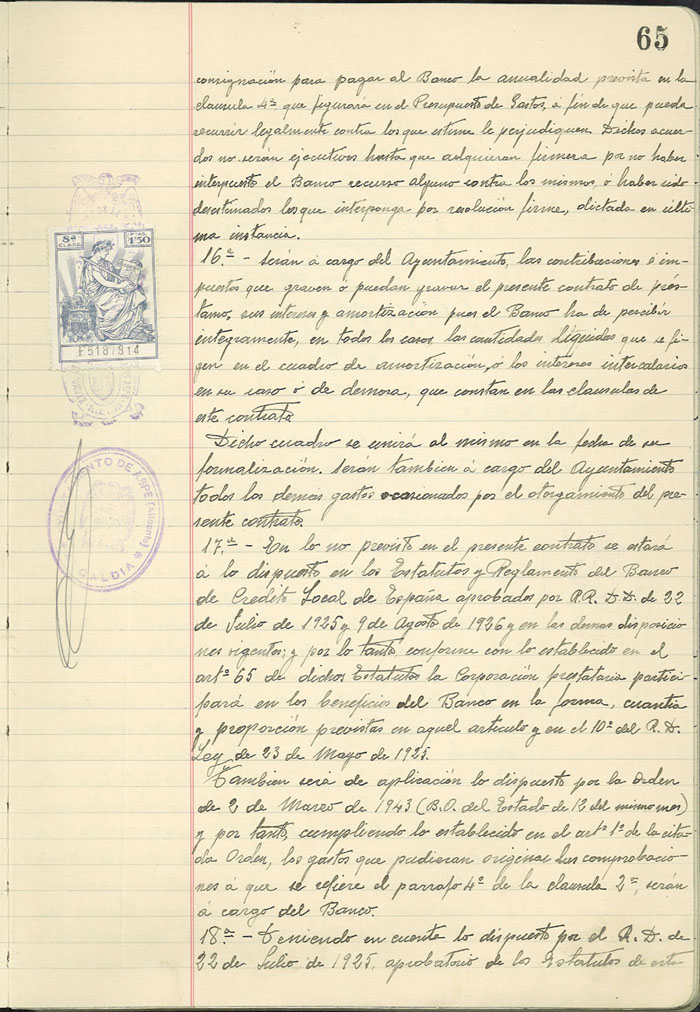 65
consignación para pagar al Banco la anualidad prevista en la
clausula 4ª que figurará en el Presupuesto de Gastos, á fin de que pueda
recurrir legalmente contra los que estime le perjudiquen. Dichos acuer-
dos no serán ejecutivos hasta que adquieran firmeza por no haber
interpuesto el Banco recurso alguno contra los mismos, ó haber sido
desestimados los que interponga por resolución firme, dictada en últi-
ma instancia.
16.ª - Serán á cargo del Ayuntamiento, las contribuciones é im-
puestos que graven ó puedan gravar el presente contrato de prés-
tamo, sus intereses y amortización pues el Banco ha de percibir
integramente, en todos los casos las cantidades líquidas que se fi-
gen en el cuadro de amortización, ó los intereses intercalarios
en su caso ó de demora, que constán en las clausulas de
este contrato.
Dicho cuadro se unirá al mismo en la fecha de su
formalización. Serán tambien á cargo del Ayuntamiento
todos los demás gastos ocasionados por el otorgamiento del pre-
sente contrato.
17.ª - En lo no previsto en el presente contrato se estará
á lo dispuesto en los Estatutos y Reglamento del Banco
de Credito Local de España aprobados por R.R. D.D. de 22
de Julio de 1925 y 9 de Agosto de 1926 y en las demas disposicio-
nes vigentes; y por lo tanto, conforme con lo establecido en el
artº 65 de dichos Estatutos la Corporación prestataria partici-
pará en los beneficios del Banco en la forma, cuantia
y proporción previstas en aquel articulo y en el 10º del R. D.
Ley de 23 de Mayo de 1925.
Tambien será de aplicación lo dispuesto por la Orden
de 2 de Marzo de 1943 (B.O. del Estado de 12 del mismo mes)
y por tanto, cumpliendo lo establecido en el artº 1º de la cita-
da Orden, los gastos que pudieran originar las comprobacio-
nes á que se refiere el parrafo 4º de la clausula 2ª, serán
á cargo del Banco.
18.ª - Teniendo en cuenta lo dispuesto por el R. D. de
22 de Julio de 1925, aprobatorio de los Estatutos de esta
8ª CLASE
PTAS. 1'50
E5187814
AYUNTAMIENTO DE ASPE (Alicante)
ALCALDIA